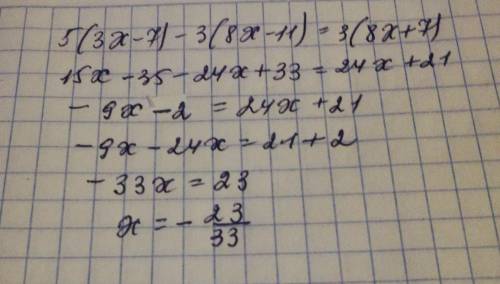 5(3x-7)-3(8x-11)=3(8x+7)
15x-35-24x+33=24x+21
-9x-2=24x+21
-9x-24x=21+2
-33x=23
x=-23/33